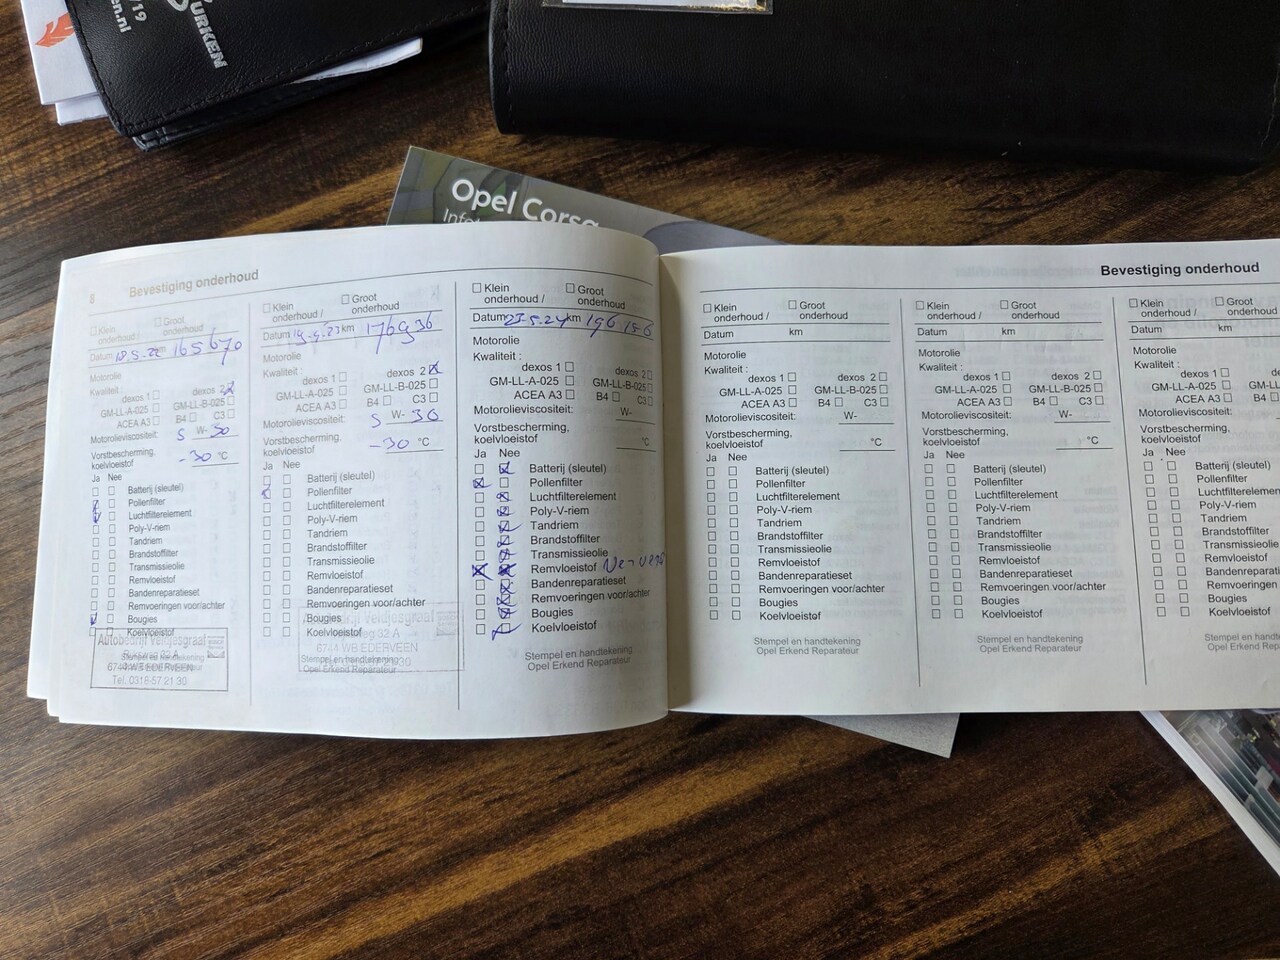 URKEN
/19
en.nl
Opel Corsa
8 Bevestiging onderhoud
☐ Klein onderhoud / ☐ Groot onderhoud
Datum 18-5-22 km 165670
Motorolie
Kwaliteit :
dexos 2
GM-LL-A-025 ☐ GM-LL-B-025 ☐
ACEA A3 ☐ B4 ☐ C3 ☐
Motorolieviscositeit: 5 W- 30
Vorstbescherming,
koelvloeistof -30 °C
Ja Nee
Batterij (sleutel)
Pollenfilter
Luchtfilterelement
Poly-V-riem
Tandriem
Brandstoffilter
Transmissieolie
Remvloeistof
Bandenreparatieset
Remvoeringen voor/achter
Bougies
Koelvloeistof
Autobedrijf Veldjesgraaf
Stempel en handtekening
6744 WB EDERVEEN
Tel. 0318-57 21 30
☐ Klein onderhoud / ☐ Groot onderhoud
Datum km 176936
Motorolie
Kwaliteit :
dexos 1 ☐ dexos 2
GM-LL-A-025 ☐ GM-LL-B-025 ☐
ACEA A3 ☐ B4 ☐ C3 ☐
Motorolieviscositeit: 5 W- 30
Vorstbescherming,
koelvloeistof -30 °C
Ja Nee
Batterij (sleutel)
Pollenfilter
Luchtfilterelement
Poly-V-riem
Tandriem
Brandstoffilter
Transmissieolie
Remvloeistof
Bandenreparatieset
Remvoeringen voor/achter
Bougies
Koelvloeistof
6744 WB EDERVEEN
Stempel en handtekening
☐ Klein onderhoud / ☐ Groot onderhoud
Datum 23-5-24 km 196 186
Motorolie
Kwaliteit :
dexos 1 ☐ dexos 2 ☐
GM-LL-A-025 ☐ GM-LL-B-025 ☐
ACEA A3 ☐ B4 ☐ C3 ☐
Motorolieviscositeit: W-
Vorstbescherming,
koelvloeistof °C
Ja Nee
Batterij (sleutel)
Pollenfilter
Luchtfilterelement
Poly-V-riem
Tandriem
Brandstoffilter
Transmissieolie
Remvloeistof
Bandenreparatieset
Remvoeringen voor/achter
Bougies
Koelvloeistof
Stempel en handtekening
Opel Erkend Reparateur
Bevestiging onderhoud
☐ Klein onderhoud / ☐ Groot onderhoud
Datum km
Motorolie
Kwaliteit :
dexos 1 ☐ dexos 2 ☐
GM-LL-A-025 ☐ GM-LL-B-025 ☐
ACEA A3 ☐ B4 ☐ C3 ☐
Motorolieviscositeit: W-
Vorstbescherming,
koelvloeistof °C
Ja Nee
Batterij (sleutel)
Pollenfilter
Luchtfilterelement
Poly-V-riem
Tandriem
Brandstoffilter
Transmissieolie
Remvloeistof
Bandenreparatieset
Remvoeringen voor/achter
Bougies
Koelvloeistof
Stempel en handtekening
Opel Erkend Reparateur
☐ Klein onderhoud / ☐ Groot onderhoud
Datum km
Motorolie
Kwaliteit :
dexos 1 ☐ dexos 2 ☐
GM-LL-A-025 ☐ GM-LL-B-025 ☐
ACEA A3 ☐ B4 ☐ C3 ☐
Motorolieviscositeit: W-
Vorstbescherming,
koelvloeistof °C
Ja Nee
Batterij (sleutel)
Pollenfilter
Luchtfilterelement
Poly-V-riem
Tandriem
Brandstoffilter
Transmissieolie
Remvloeistof
Bandenreparatieset
Remvoeringen voor/achter
Bougies
Koelvloeistof
Stempel en handtekening
Opel Erkend Reparateur
☐ Klein onderhoud / ☐ Groot onderhoud
Datum km
Motorolie
Kwaliteit :
dexos 1 ☐
GM-LL-A-025 ☐ GM-LL-B
ACEA A3 ☐ B4 ☐
Motorolieviscositeit: W-
Vorstbescherming,
koelvloeistof
Ja Nee
Batterij (sleutel)
Pollenfilter
Luchtfilterelement
Poly-V-riem
Tandriem
Brandstoffilter
Transmissieolie
Remvloeistof
Bandenreparatieset
Remvoeringen voor/ach
Bougies
Koelvloeistof
Stempel en handteken
Opel Erkend Reparat